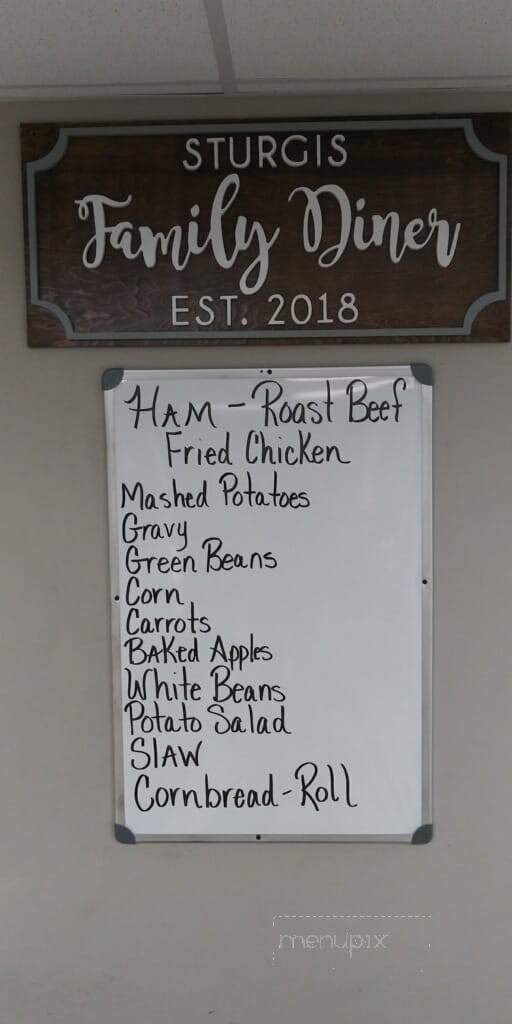 STURGIS
Family Diner
EST. 2018
HAM - Roast Beef
Fried Chicken
Mashed Potatoes
Gravy
Green Beans
Corn
Carrots
BAKed Apples
White Beans
Potato Salad
SlAW
Cornbread - Roll
menupix